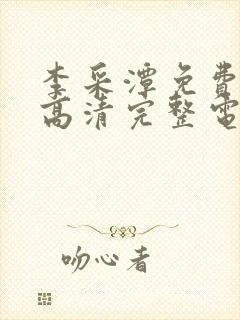 李采潭免費
高清完整電
吻心者